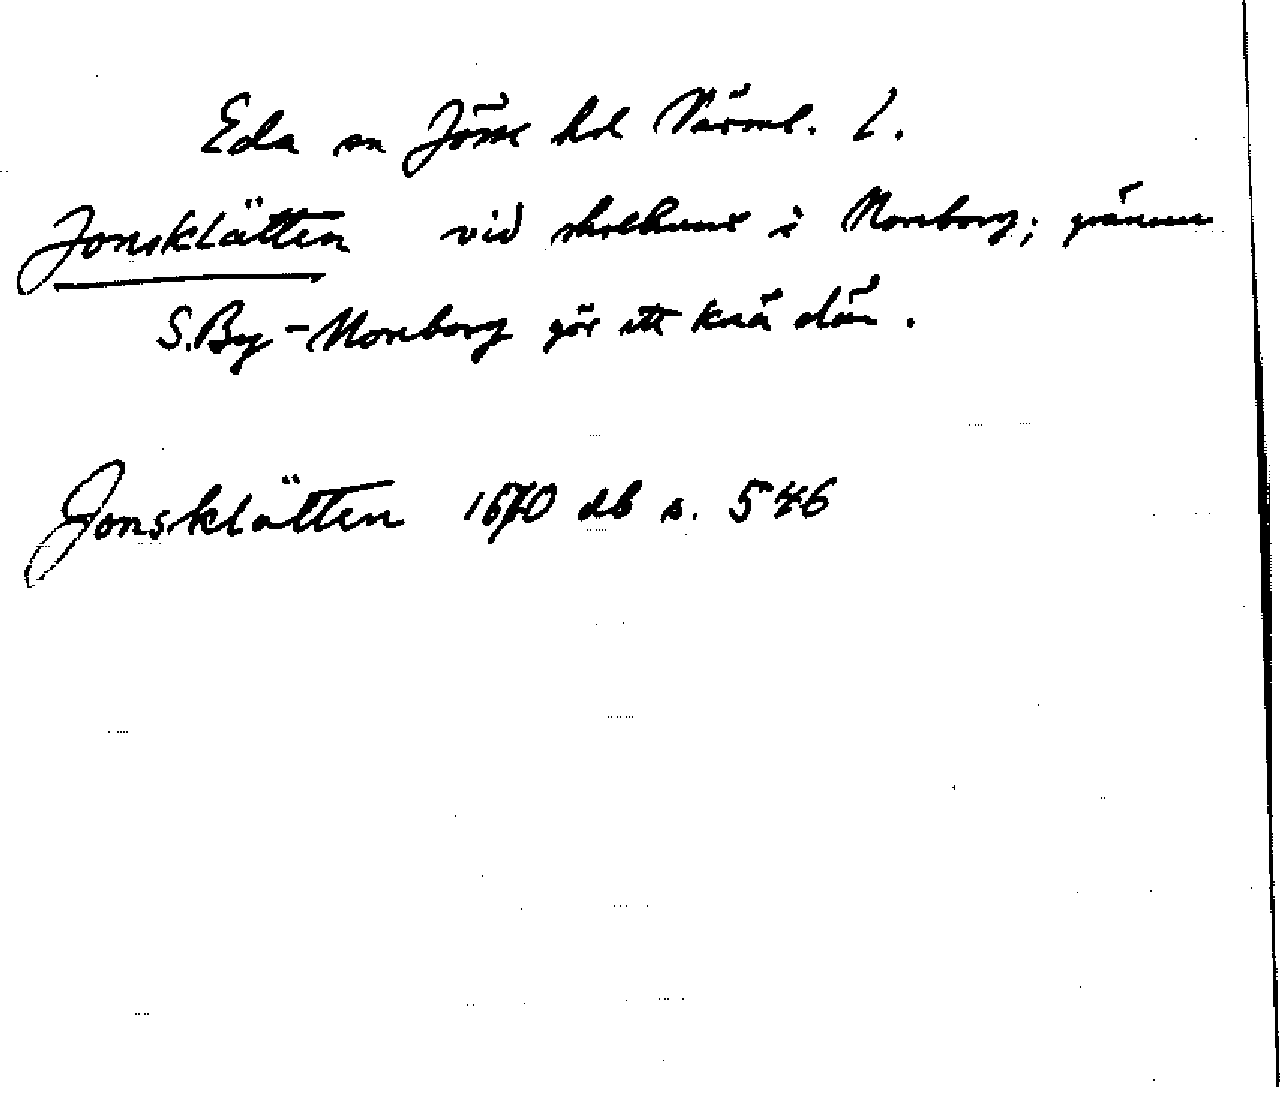 Eda sn Jösse hd Värml. l.
Jonsklätten vid skolhuset i Monsborg; gränsen
S. By - Monsborg gör ett knä där.
Jonsklätten 1670 db s. 546